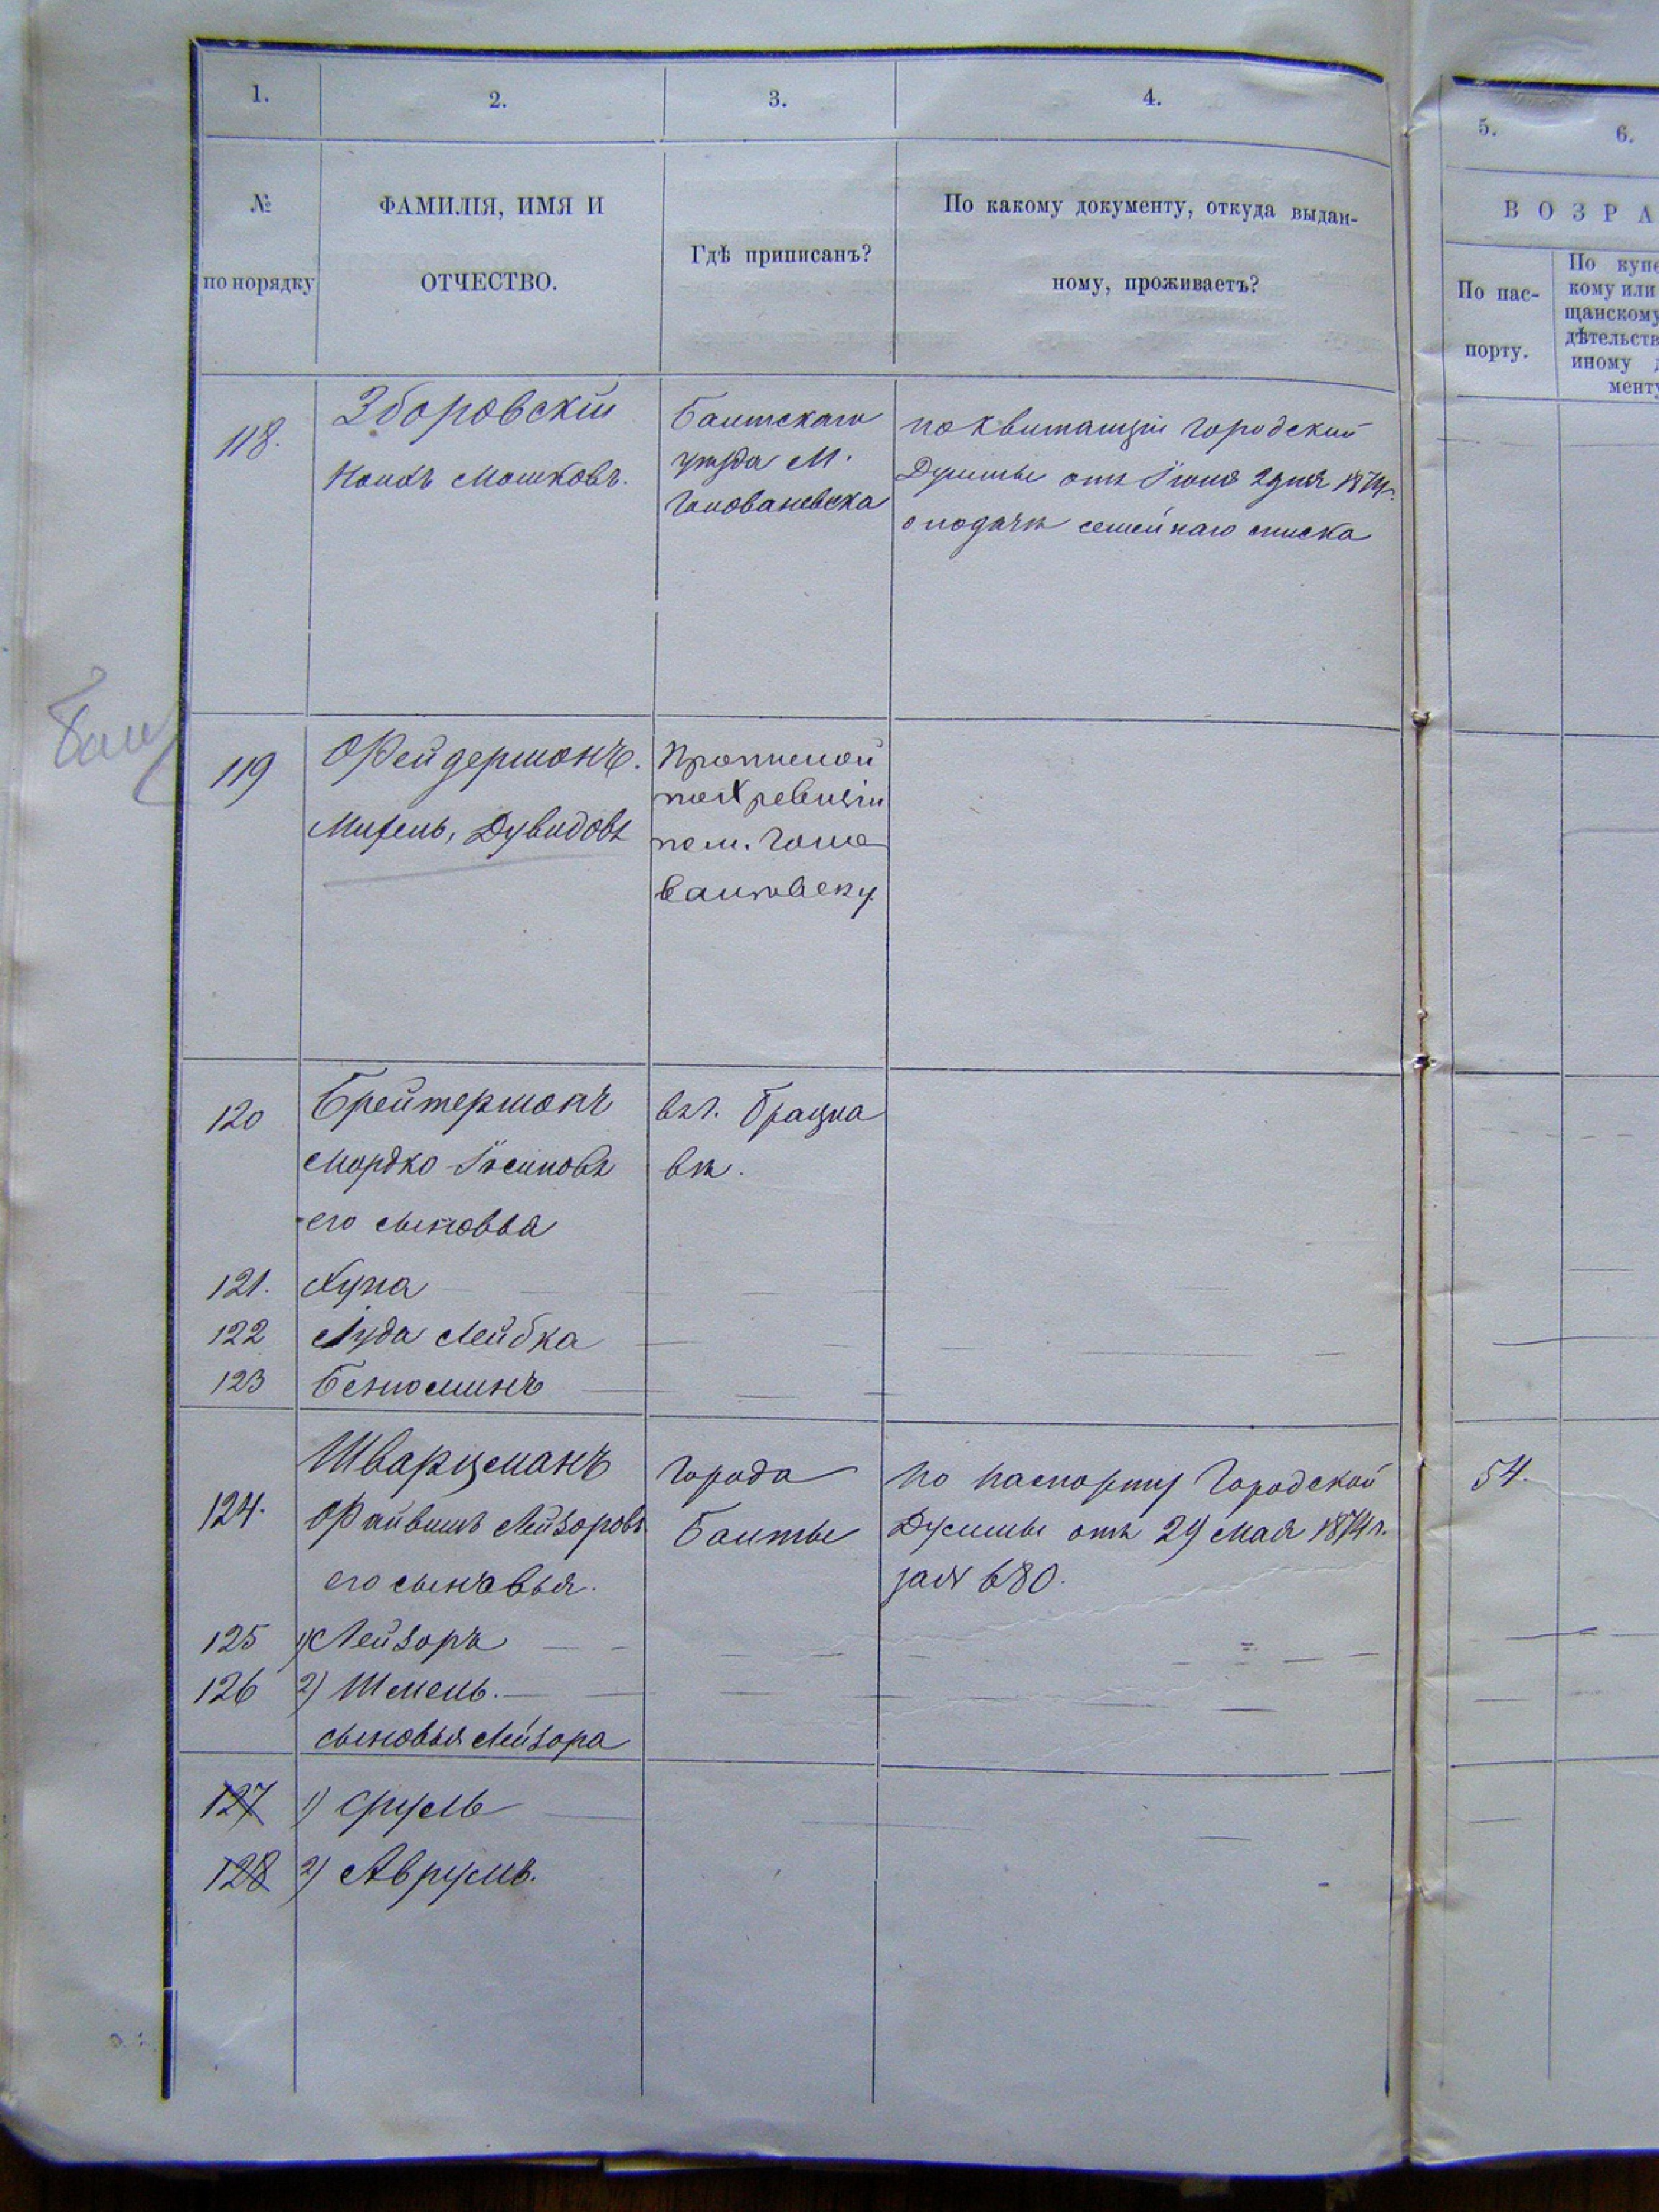 1.
2.
3.
4.
5.
6.
№
по порядку
ФАМИЛІЯ, ИМЯ И
ОТЧЕСТВО.
Гдѣ приписанъ?
По какому документу, откуда выдан-
ному, проживаетъ?
ВОЗРА
По пас-
порту.
По купе
кому или
щанскому
дѣтельств
иному д
менту
118.
Зборовскій
Мошковъ.
Балтскаго
уѣзда М.
Голованевска
по квитанціи Городской
Думы отъ Іюня 2 дня 1874 г.
о подачѣ семейнаго списка
Бал
119
Фейдерманъ.
Михель, Дувидовъ
по X ревизіи
по м. Голо
120
Брейтерманъ
Мордко Іосиповъ
его сыновья
въ г. Брацла
вѣ.
121.
Хуна
122
Іуда Лейбка
123
Беніоминъ
124.
Шварцманъ
Файвишъ Лейзоровъ
его сыновья.
Города
Балты
по паспорту Городской
Думы отъ 29 Мая 1874 г.
за № 680.
54.
125 1) Лейзоръ
126 2) Шмель.
сыновья Лейзора
127 1) Сруль
128 2) Аврумъ.